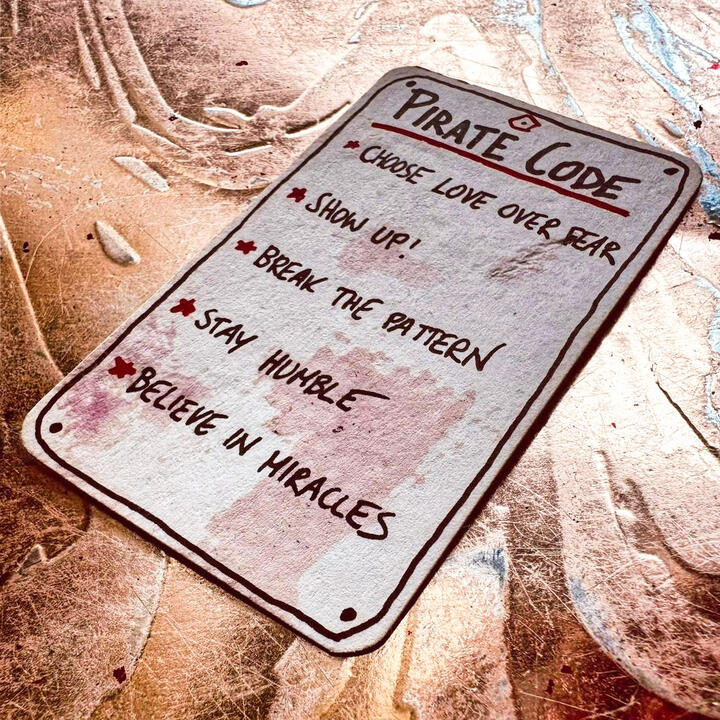 PIRATE CODE
CHOOSE LOVE OVER FEAR
SHOW UP!
BREAK THE PATTERN
STAY HUMBLE
BELIEVE IN MIRACLES